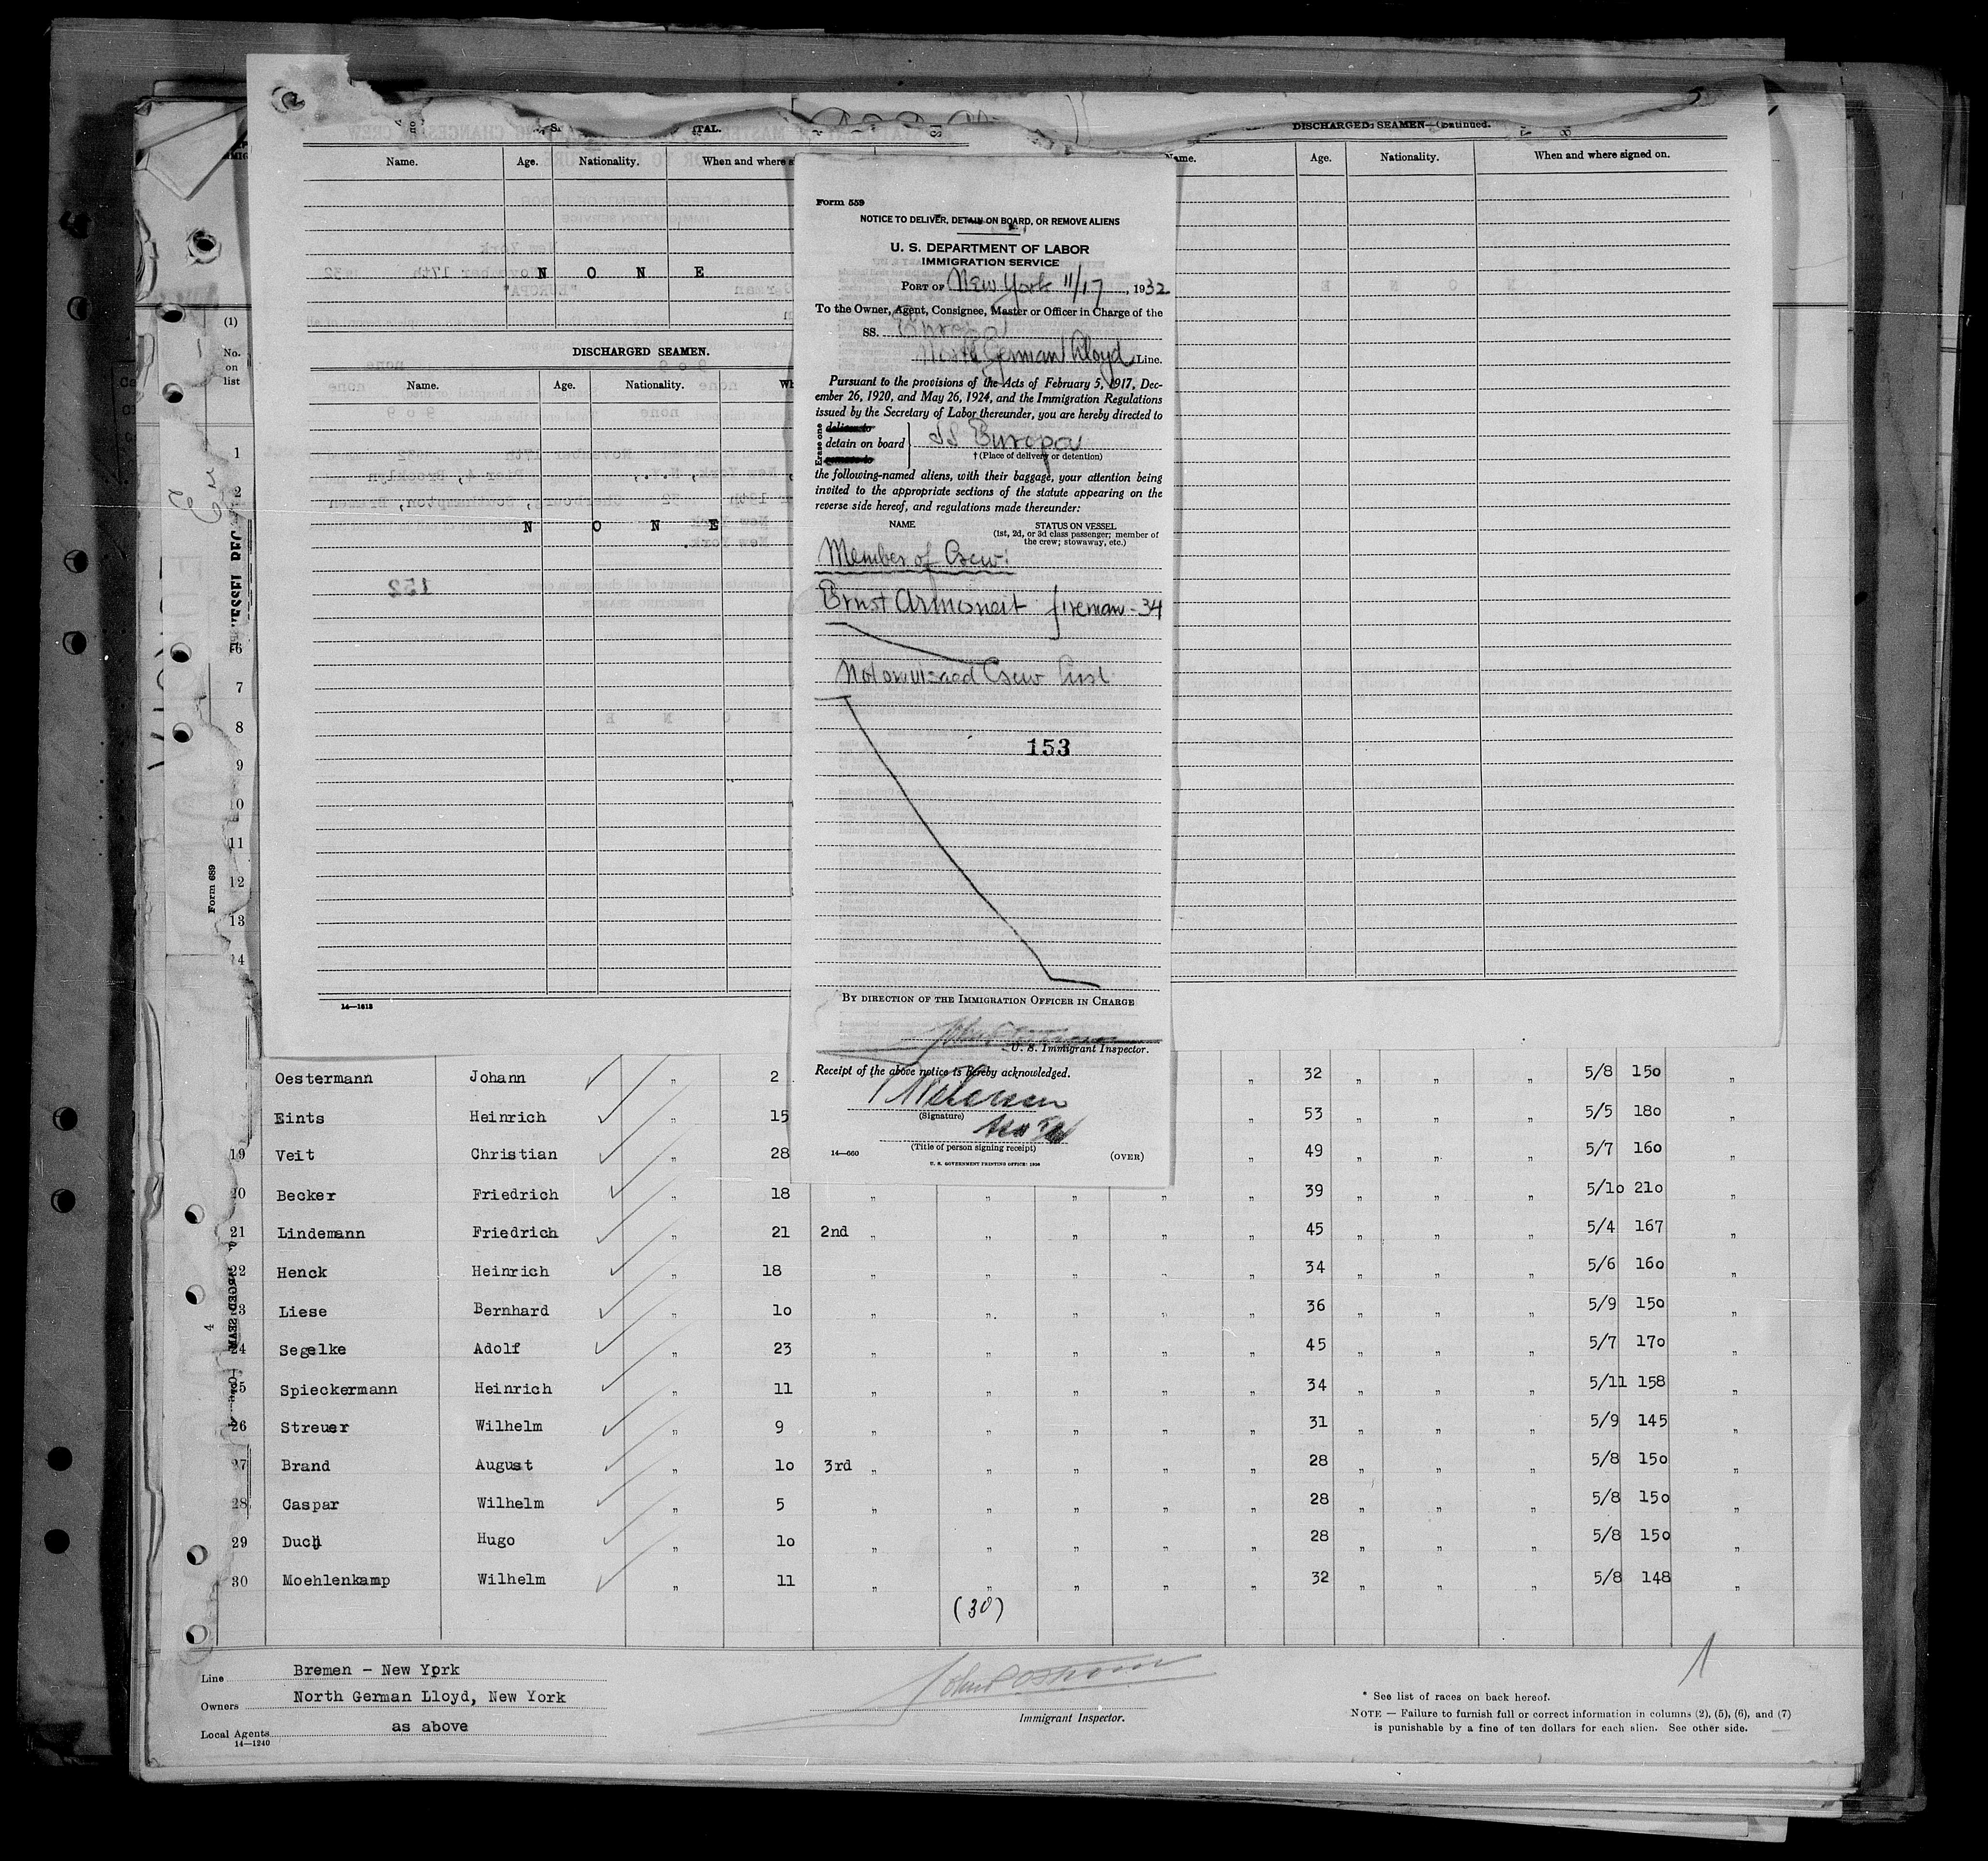 DISCHARGED SEAMEN—Continued.
Name. Age. Nationality. When and where
Name. Age. Nationality. When and where signed on.
N O N E
DISCHARGED SEAMEN.
Name. Age. Nationality.
N O N E
14—1613
Form 559
NOTICE TO DELIVER, DETAIN ON BOARD, OR REMOVE ALIENS
U. S. DEPARTMENT OF LABOR
IMMIGRATION SERVICE
PORT OF New York 11/17, 1932
To the Owner, Agent, Consignee, Master or Officer in Charge of the
SS. Europa
North German Lloyd Line.
Pursuant to the provisions of the Acts of February 5, 1917, Dec-
ember 26, 1920, and May 26, 1924, and the Immigration Regulations
issued by the Secretary of Labor thereunder, you are hereby directed to
Erase one
deliver to
detain on board } SS Europa
remove to
† (Place of delivery or detention)
the following-named aliens, with their baggage, your attention being
invited to the appropriate sections of the statute appearing on the
reverse side hereof, and regulations made thereunder:
NAME STATUS ON VESSEL
(1st, 2d, or 3d class passenger; member of
the crew; stowaway, etc.)
Member of Crew:
Ernst Armoneit fireman - 34
Not on visaed Crew List
153
BY DIRECTION OF THE IMMIGRATION OFFICER IN CHARGE
U. S. Immigrant Inspector.
Receipt of the above notice is hereby acknowledged.
(Signature)
(Title of person signing receipt)
14—660 (OVER)
U. S. GOVERNMENT PRINTING OFFICE: 1926
(1)
No.
on
list
1
2
6
7
8
9
10
11
12
13
14
Form 689
Oestermann Johann " 2 " 32 " " " 5/8 150 "
Eints Heinrich " 15 " 53 " " " 5/5 180 "
19 Veit Christian " 28 " 49 " " " 5/7 160 "
20 Becker Friedrich " 18 " " " " " 39 " " " 5/10 210 "
21 Lindemann Friedrich " 21 2nd " " " " " 45 " " " 5/4 167 "
22 Henck Heinrich " 18 " " " " " 34 " " " 5/6 160 "
23 Liese Bernhard " 10 " " " " " 36 " " " 5/9 150 "
24 Segelke Adolf " 23 " " " " " 45 " " " 5/7 170 "
25 Spieckermann Heinrich " 11 " " " " " 34 " " " 5/11 158 "
26 Streuer Wilhelm " 9 " " " " " 31 " " " 5/9 145 "
27 Brand August " 10 3rd " " " " " 28 " " " 5/8 150 "
28 Caspar Wilhelm " 5 " " " " " 28 " " " 5/8 150 "
29 Duch Hugo " 10 " " " " " 28 " " " 5/8 150 "
30 Moehlenkamp Wilhelm " 11 " " " " " 32 " " " 5/8 148 "
(30)
Line Bremen - New York
Owners North German Lloyd, New York
Local Agents as above
14—1240
John C Ostrom
Immigrant Inspector.
* See list of races on back hereof.
NOTE — Failure to furnish full or correct information in columns (2), (5), (6), and (7)
is punishable by a fine of ten dollars for each alien. See other side.